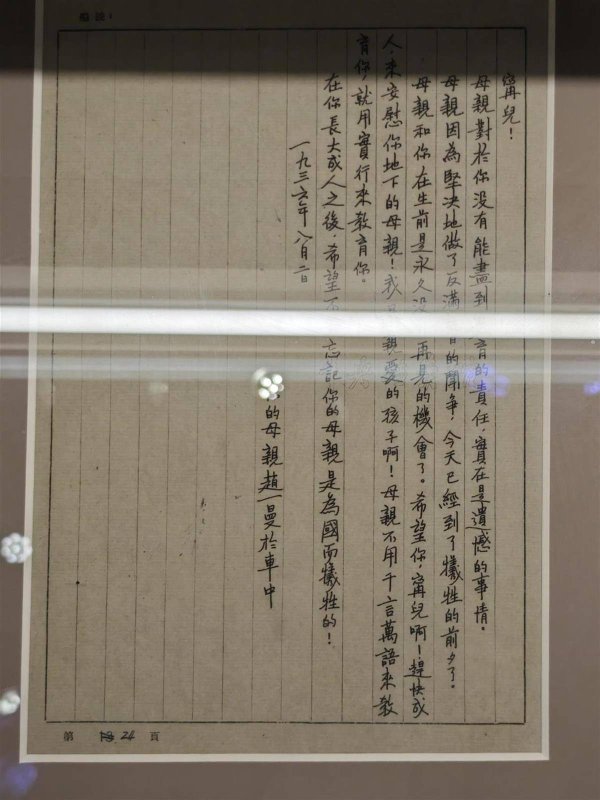 備註：
甯兒！
母親對於你没有能盡到育的責任，實在是遺憾的事情。
母親因為堅決地做了反滿的鬧争，今天已經到了犧牲的前夕了。
母親和你在生前是永久没再見的機會了。希望你，甯兒啊！趕快成
人，来安慰你地下的母親！我親愛的孩子啊！母親不用千言萬語来教
育你，就用實行来教育你。
在你長大成人之後，希望不忘記你的母親是為國而犧牲的！
一九三六年八月二日
的母親趙一曼於車中
第 24 頁